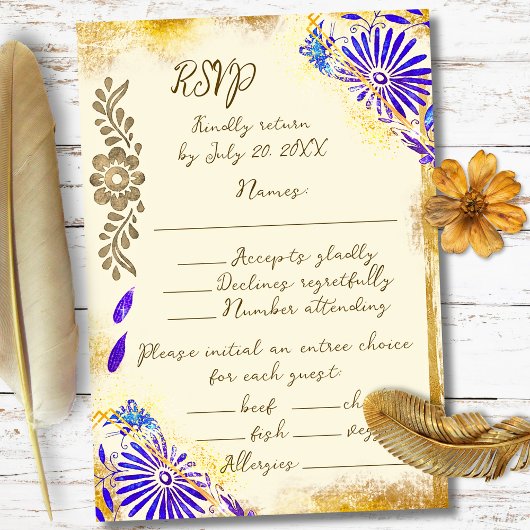 RSVP
Kindly return
by July 20. 20XX
Names:
Accepts gladly
Declines regretfully
Number attending
Please initial an entree choice
for each guest:
beef
fish
Allergies